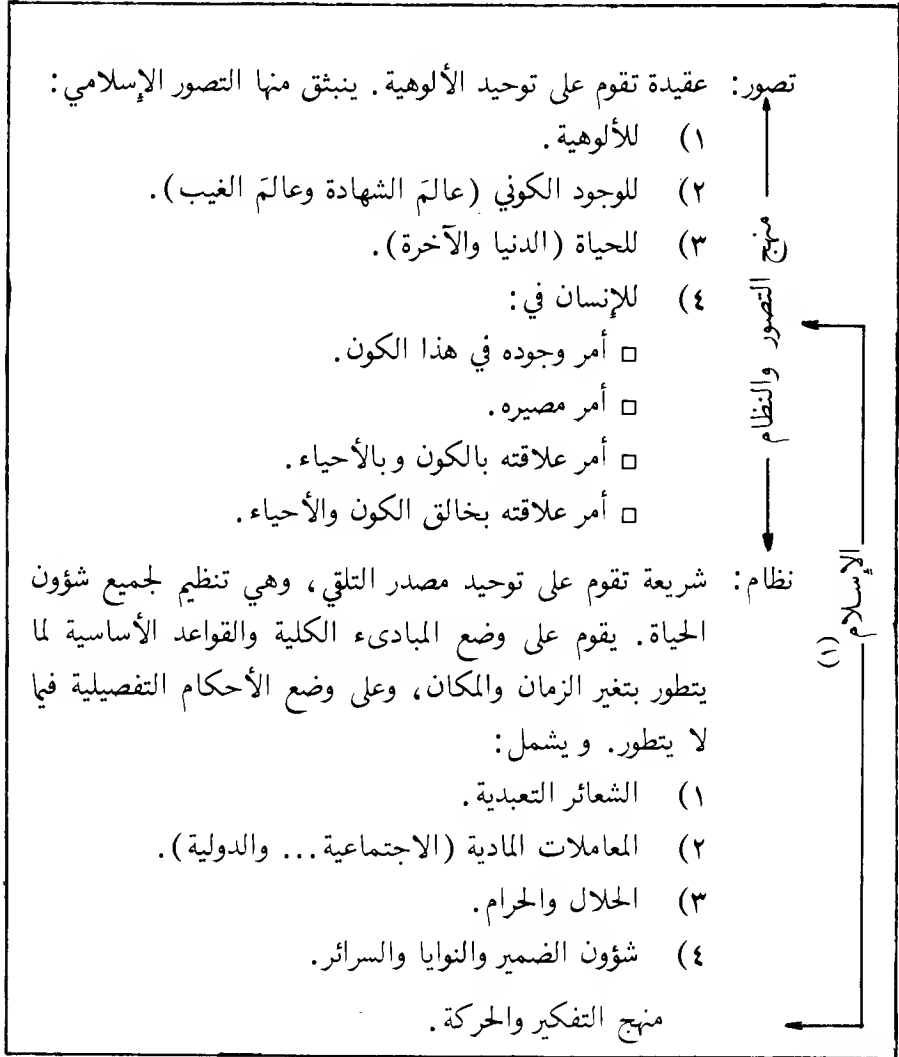 تصور: عقيدة تقوم على توحيد الألوهية. ينبثق منها التصور الإسلامي:
١) للألوهية.
٢) للوجود الكوني (عالمَ الشهادة وعالمَ الغيب).
٣) للحياة (الدنيا والآخرة).
٤) للإنسان في:
□ أمر وجوده في هذا الكون.
□ أمر مصيره.
□ أمر علاقته بالكون وبالأحياء.
□ أمر علاقته بخالق الكون والأحياء.
منهج التصور والنظام
نظام: شريعة تقوم على توحيد مصدر التلقي، وهي تنظيم لجميع شؤون
الحياة. يقوم على وضع المبادىء الكلية والقواعد الأساسية لما
يتطور بتغير الزمان والمكان، وعلى وضع الأحكام التفصيلية فيما
لا يتطور. ويشمل:
١) الشعائر التعبدية.
٢) المعاملات المادية (الاجتماعية... والدولية).
٣) الحلال والحرام.
٤) شؤون الضمير والنوايا والسرائر.
منهج التفكير والحركة.
الإسلام
(١)